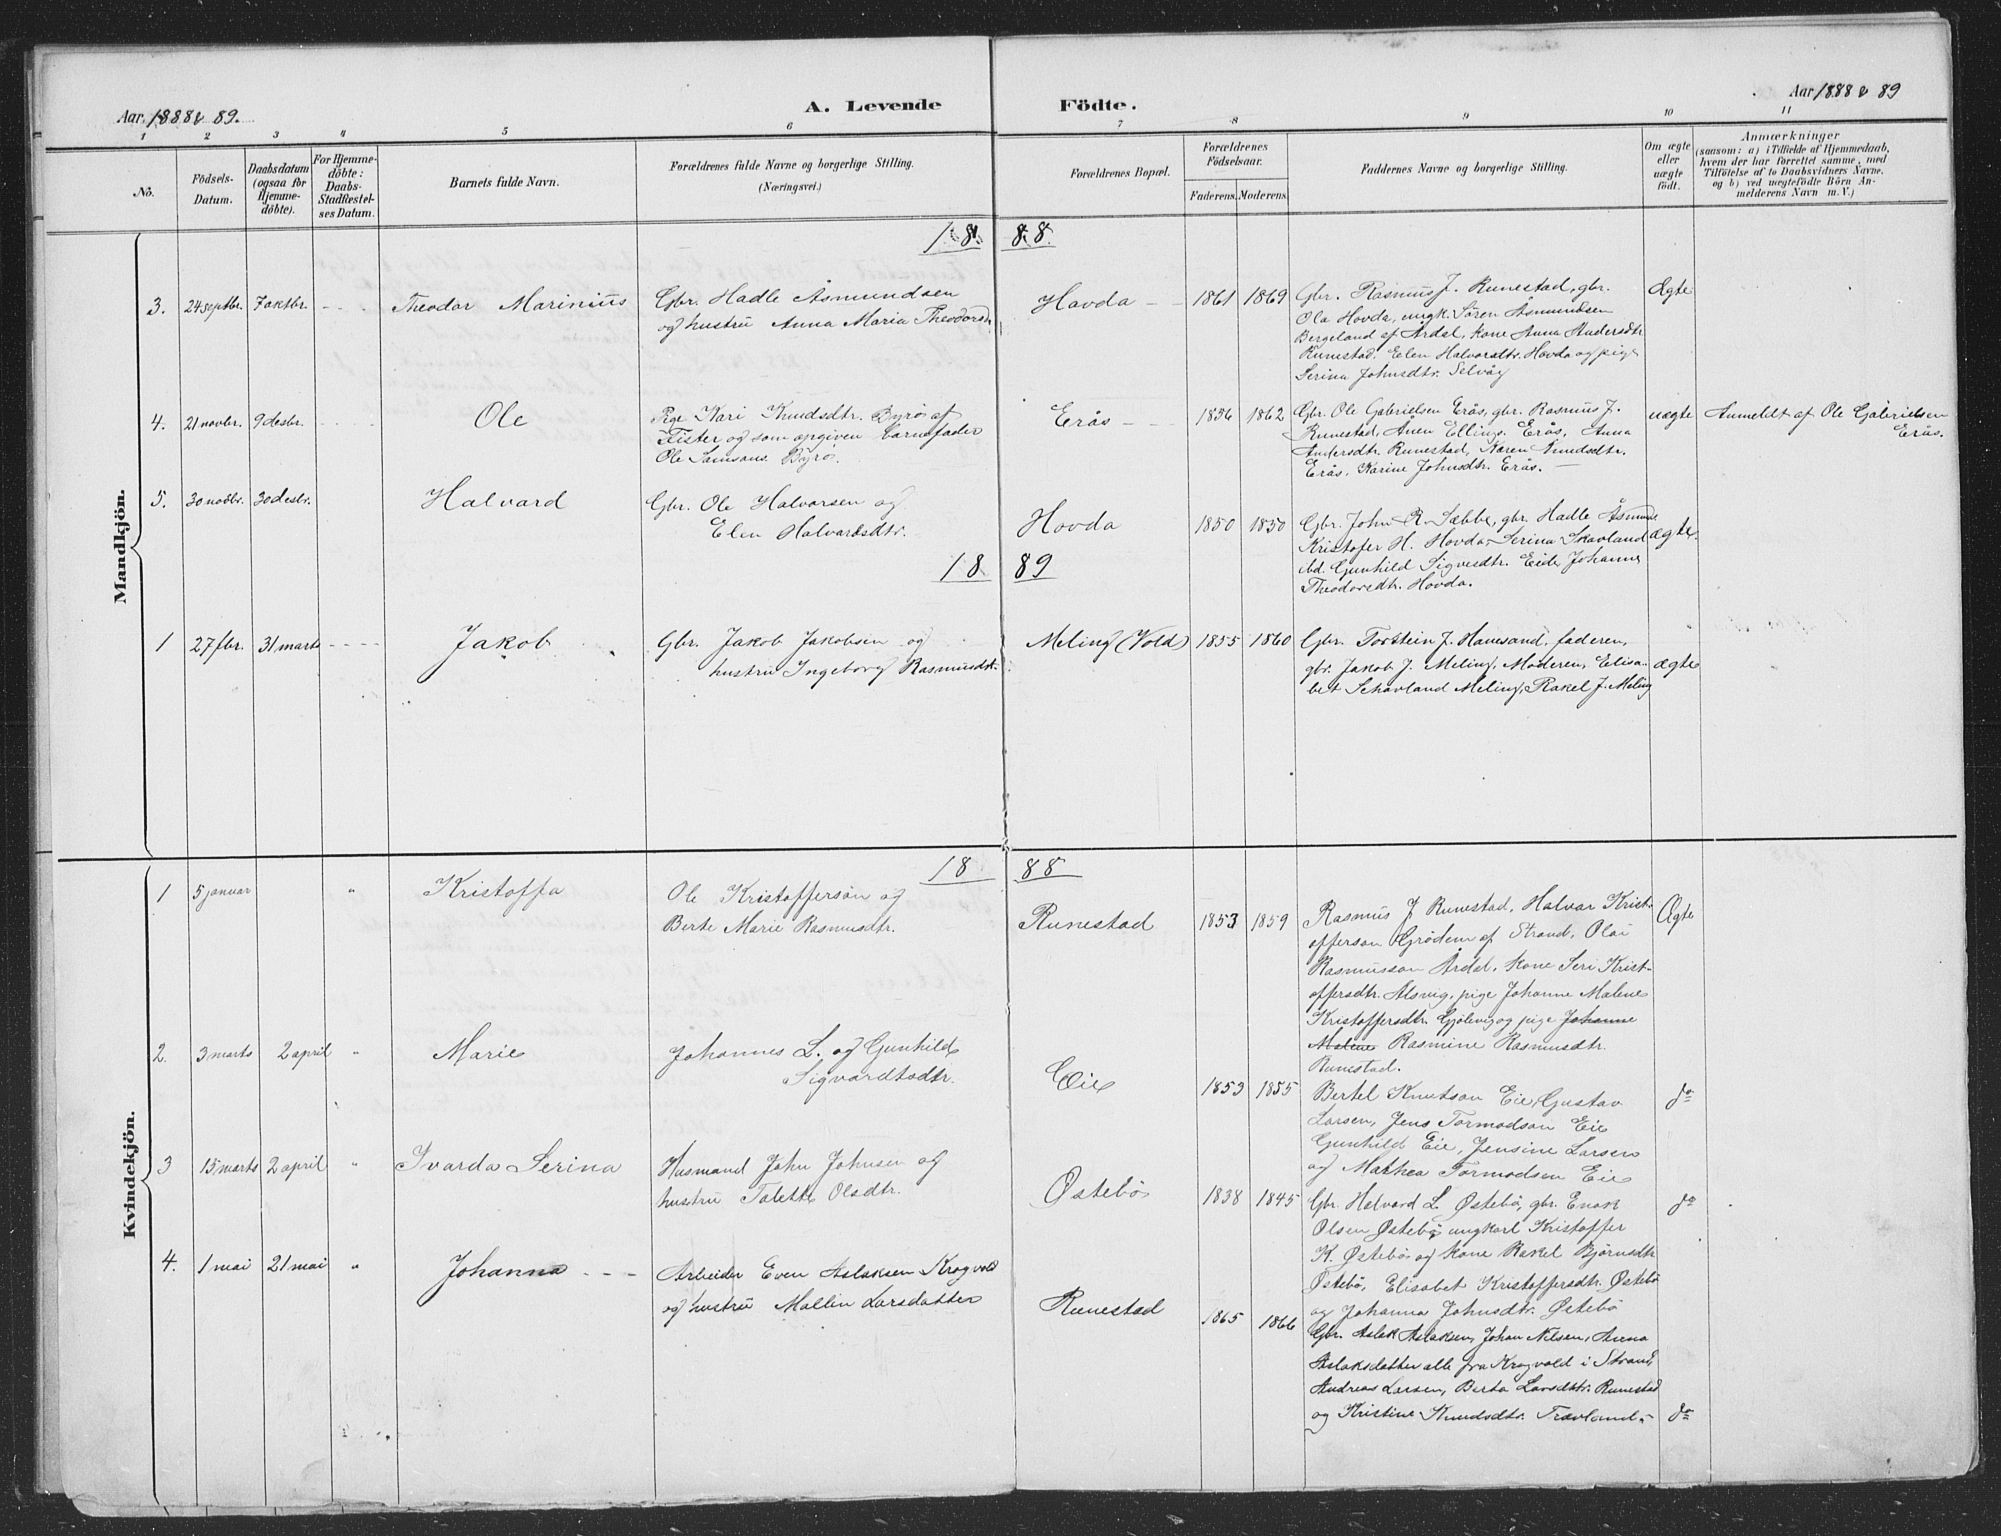 Aar 1888 & 89.
A. Levende Födte.
Aar 1888 & 89
1 2 3 4 5 6 7 8 9 10 11
No.
Födsels-
Datum.
Daabsdatum
(ogsaa for
Hjemme-
döbte).
For Hjemme-
döbte:
Daabs-
Stadfæstel-
ses Datum.
Barnets fulde Navn.
Forældrenes fulde Navne og borgerlige Stilling.
(Næringsvei.)
Forældrenes Bopæl.
Forældrenes
Födselsaar.
Faderens. Moderens.
Faddernes Navne og borgerlige Stilling.
Om ægte
eller
uægte
födt.
Anmærkninger
(saasom: a) i Tilfælde af Hjemmedaab,
hvem der har forrettet samme, med
Tilföielse af to Daabsvidners Navne,
og b) ved uægtefödte Börn An-
melderens Navn m. V.)
Mandkjön.
1888.
3. 24 septbr. 7 oktbr. Theodor Marinius
Gbr. Hadle Åsmundsen
og hustru Anna Maria Theodorsd.
Hovda 1861 1869
Gbr. Rasmus J. Runestad, gbr.
Ola Hovda, ungk. Sören Åsmundsen
Bergeland af Årdal, kone Anna Andersdtr.
Runestad. Elen Halvorsdtr. Hovda og pige
Serina Johnsdtr. Selvåg
Ægte
4. 21 novbr. 9 desbr. Ole
Pige Kari Knudsdtr. Byrø af
Fister og som opgiven barnefader
Ole Samsons. Byrø.
Erås 1836 1862
Gbr. Ole Gabrielsen Erås, gbr. Rasmus J.
Runestad, Anen Ellings. Erås, Anna
Andersdtr. Runestad, Karen Knudsdtr.
Erås, Karine Johnsdtr. Erås.
uægte
Anmeldt af Ole Gabrielsen
Erås.
5. 30 novbr. 30 desbr. Halvard
Gbr. Ole Halvorsen og
Elen Halvardsdtr.
Hovda 1850 1850
Gbr. John R. Sæbbe, gbr. Hadle Åsmunds
Kristofer H. Hovda, Serina Skavland
ibd. Gunhild Sigvesdtr. Eide, Johanne
Theodorsdtr. Hovda.
ægte.
1889
1 27 fbr. 31 marts Jakob
Gbr. Jakob Jakobsen og
hustru Ingeborg Rasmusdtr.
Meling (Vold) 1855 1860
Gbr. Torstein J. Hanesand, faderen,
gbr. Jakob J. Meling, Moderen, Elisa-
bet Schavland Meling, Rakel J. Meling
ægte
Kvindekjön.
1888
1 5 januar " Kristoffa
Ole Kristoffersön og
Berte Marie Rasmusdtr.
Runestad 1853 1859
Rasmus J Runestad, Halvar Krist-
offerson Grödem af Strand, Olai
Rasmusson Årdal, kone Seri Krist-
offersdtr. Alsvig, pige Johanne Malene
Kristoffersdtr. Gjölevig og pige Johanne
Malene Rasmine Rasmusdtr.
Runestad.
Ægte
2. 3 marts 2 april " Marie
Johannes L. og Gunhild
Sigvardtsdtr.
Eie 1853 1855
Bertel Knutson Eie, Gustav
Larsen, Jens Tormodson Eie
Gunhild Eie, Jensine Larsen
og Mathea Tormodsen Eie
do
3 15 marts 2 april " Ivarda Serina
Husmand John Johnsen og
hustru Talette Olsdtr.
Østebö 1838 1845
Gbr. Halvard L. Østebö, gbr. Enok
Olsen Østebö, ungkarl Kristoffer
K. Østebö og kone Rakel Björnsdtr
Østebö, Elisabet Kristoffersdtr. Østebö
og Johanna Johnsdtr. Østebö
do
4. 1 mai 21 mai " Johanna
Arbeider Even Aslaksen Krogvold
og hustru Mallin Larsdatter
Runestad 1865 1866
Gbr. Aslak Aslaksen, Johan Nilsen, Anna
Aslaksdatter alle fra Krogvold i Strand,
Andreas Larsen, Berta Larsdtr. Runestad
og Kristine Knudsdtr. Travland
do